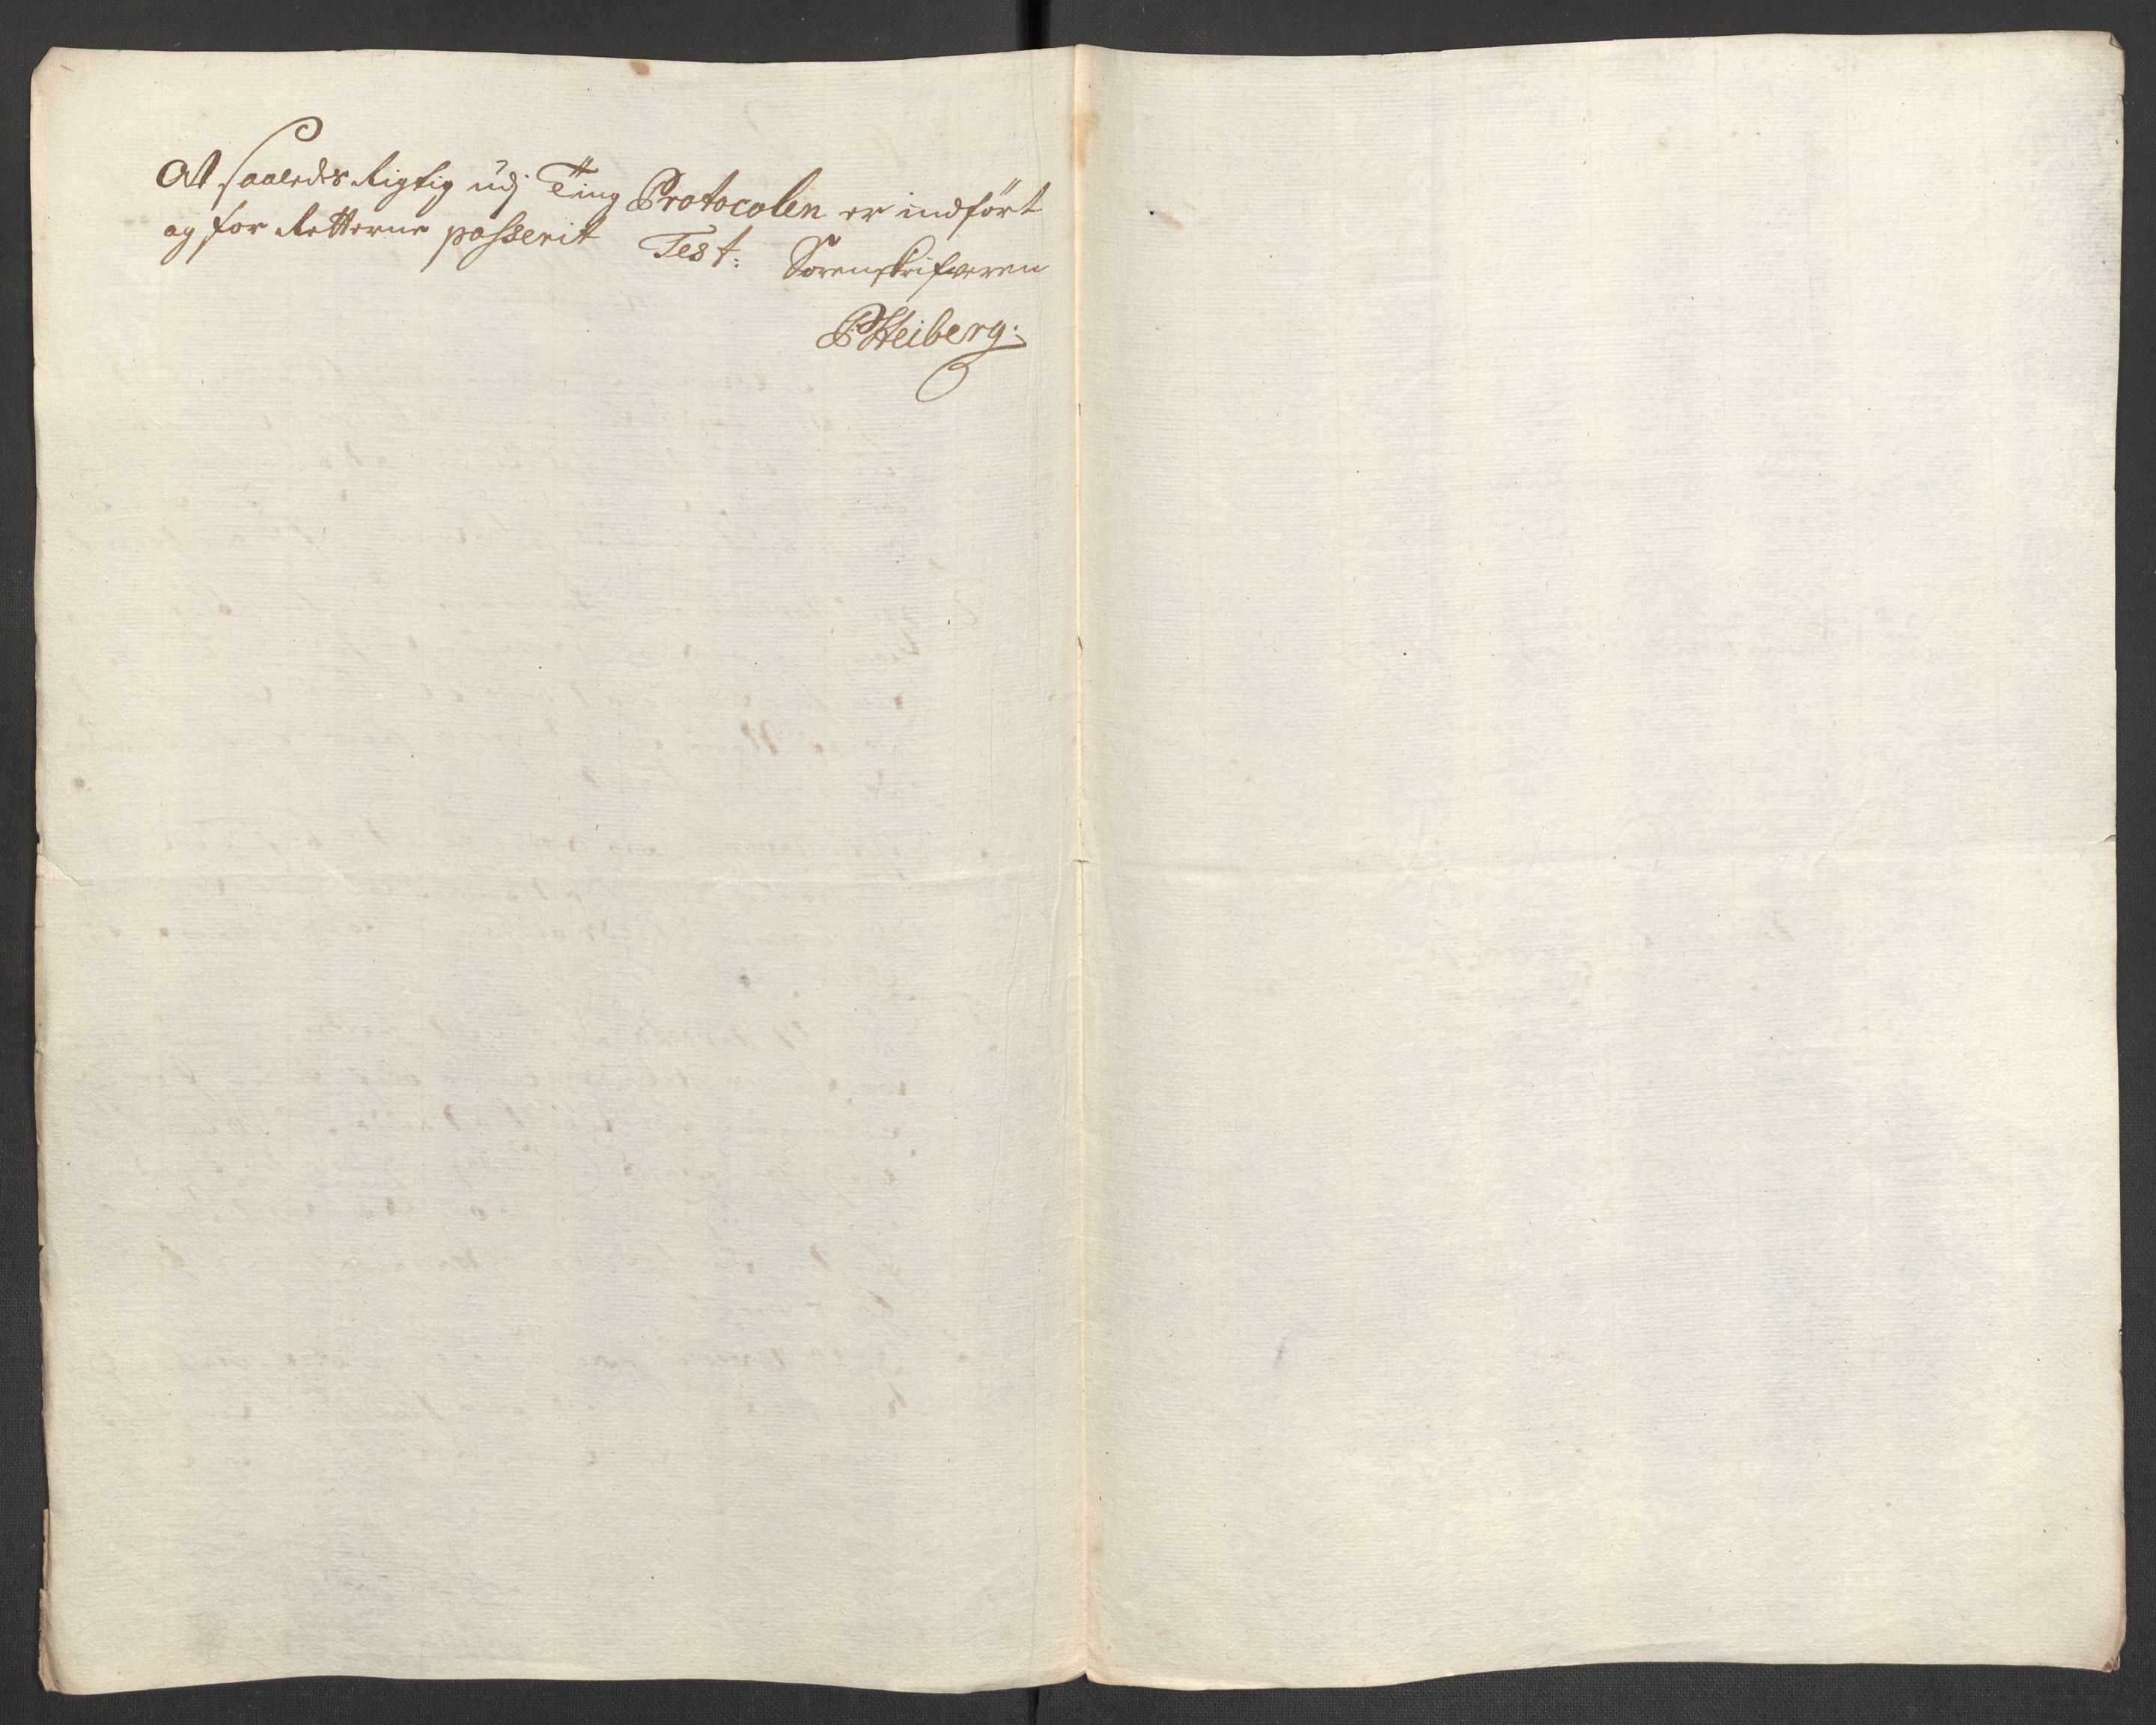 At saaledes Rigtig udj Ting Protocolen er indført
og for Retterne passerit Test: Sorenskrifveren
PHeiberg: